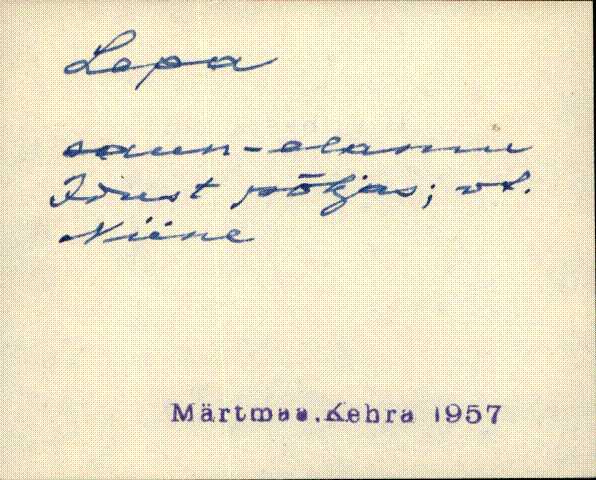 Lepa
saun-elamu
põhjas; vt.
Niine
Märtmaa. Kehra 1957